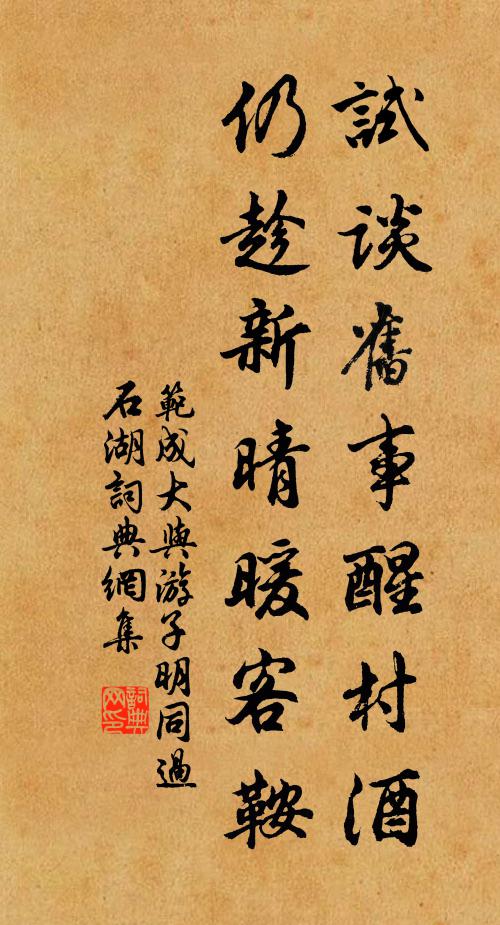 試談舊事醒村酒
仍趁新晴暖客鞍
範成大與游子明同過
石湖詞典網集
詞典网印